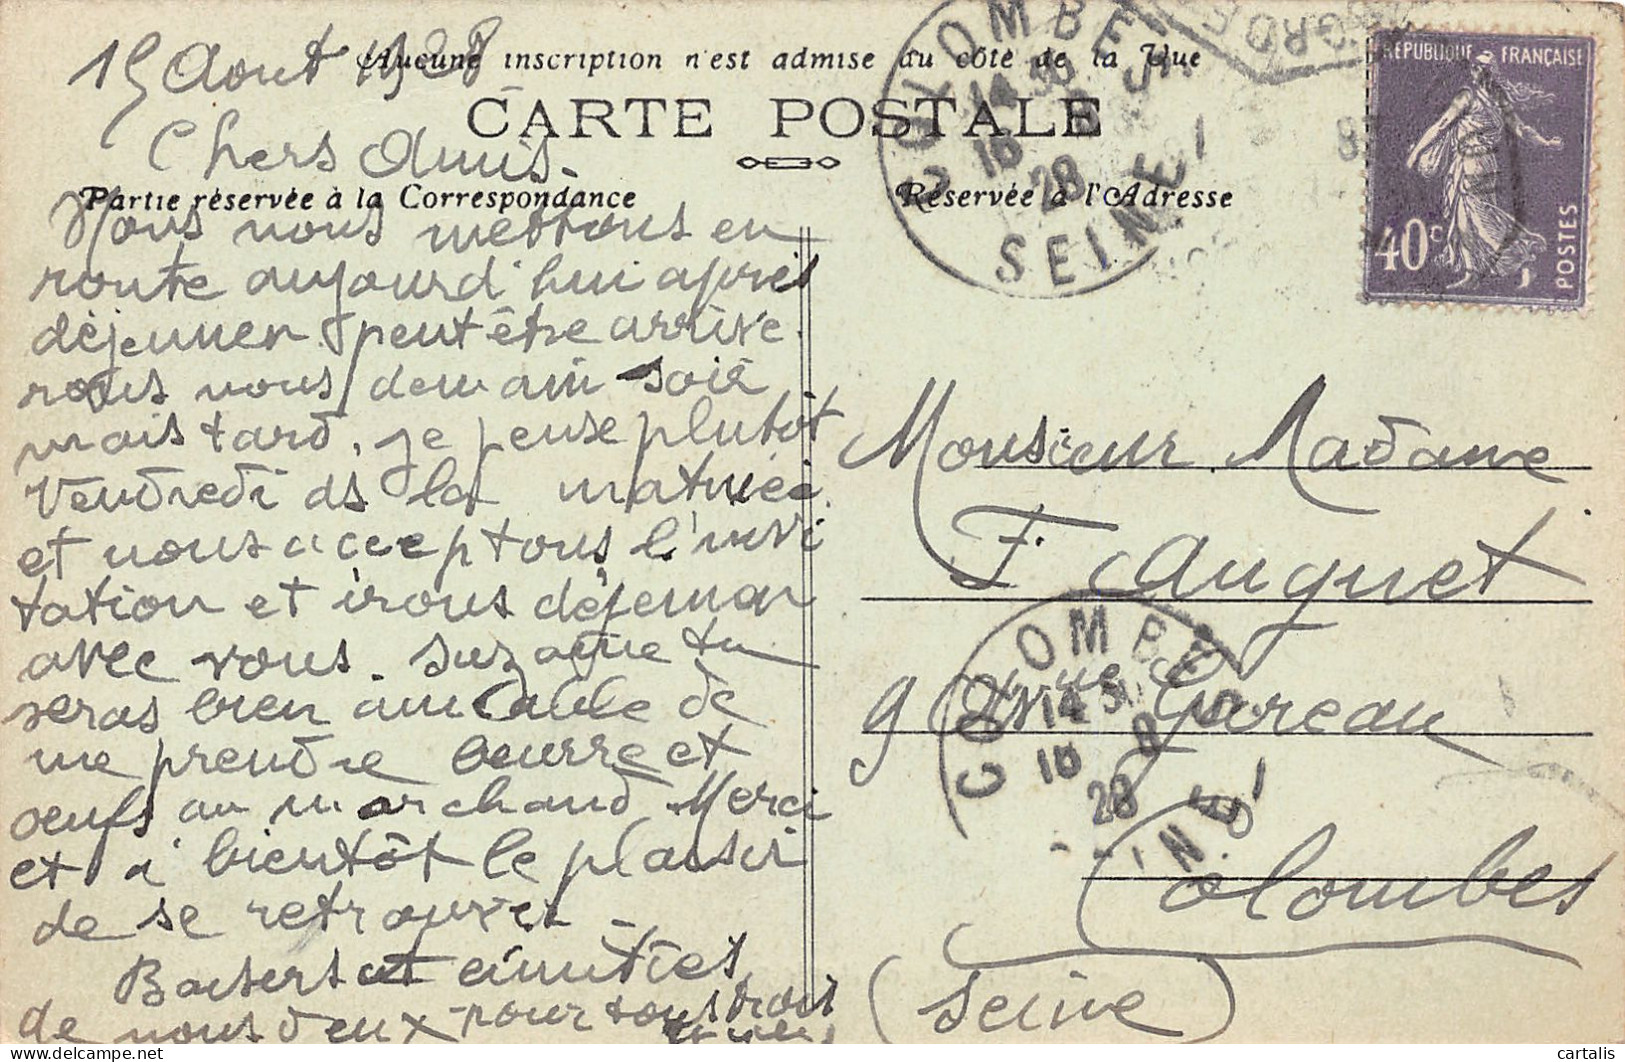 15 Aout 1928
Aucune inscription n'est admise du côté de la Vue
CARTE POSTALE
Chers Amis.
Partie réservée à la Correspondance
Nous nous mettons en
route aujourd'hui après
déjeuner peut être arrive
rons nous demain soir
mais tard. je pense plutôt
Vendredi ds la matinée
et nous acceptons l'invi
tation et irons déjeuner
avec vous. Suzanne tu
seras bien aimable de
me prendre beurre et
oeufs au marchand. Merci
et à bientôt le plaisir
de se retrouver.
Baisers et amitiés
de nous deux pour tous trois
Réservée à l'Adresse
COLOMBES
14 30
16 8
28
SEINE
RÉPUBLIQUE FRANÇAISE
40c
POSTES
Monsieur Madame
F. Cauquet
9 Avenue Gureau
COLOMBES
14 30
16 8
28
INE
Colombes
(Seine)
cartalis